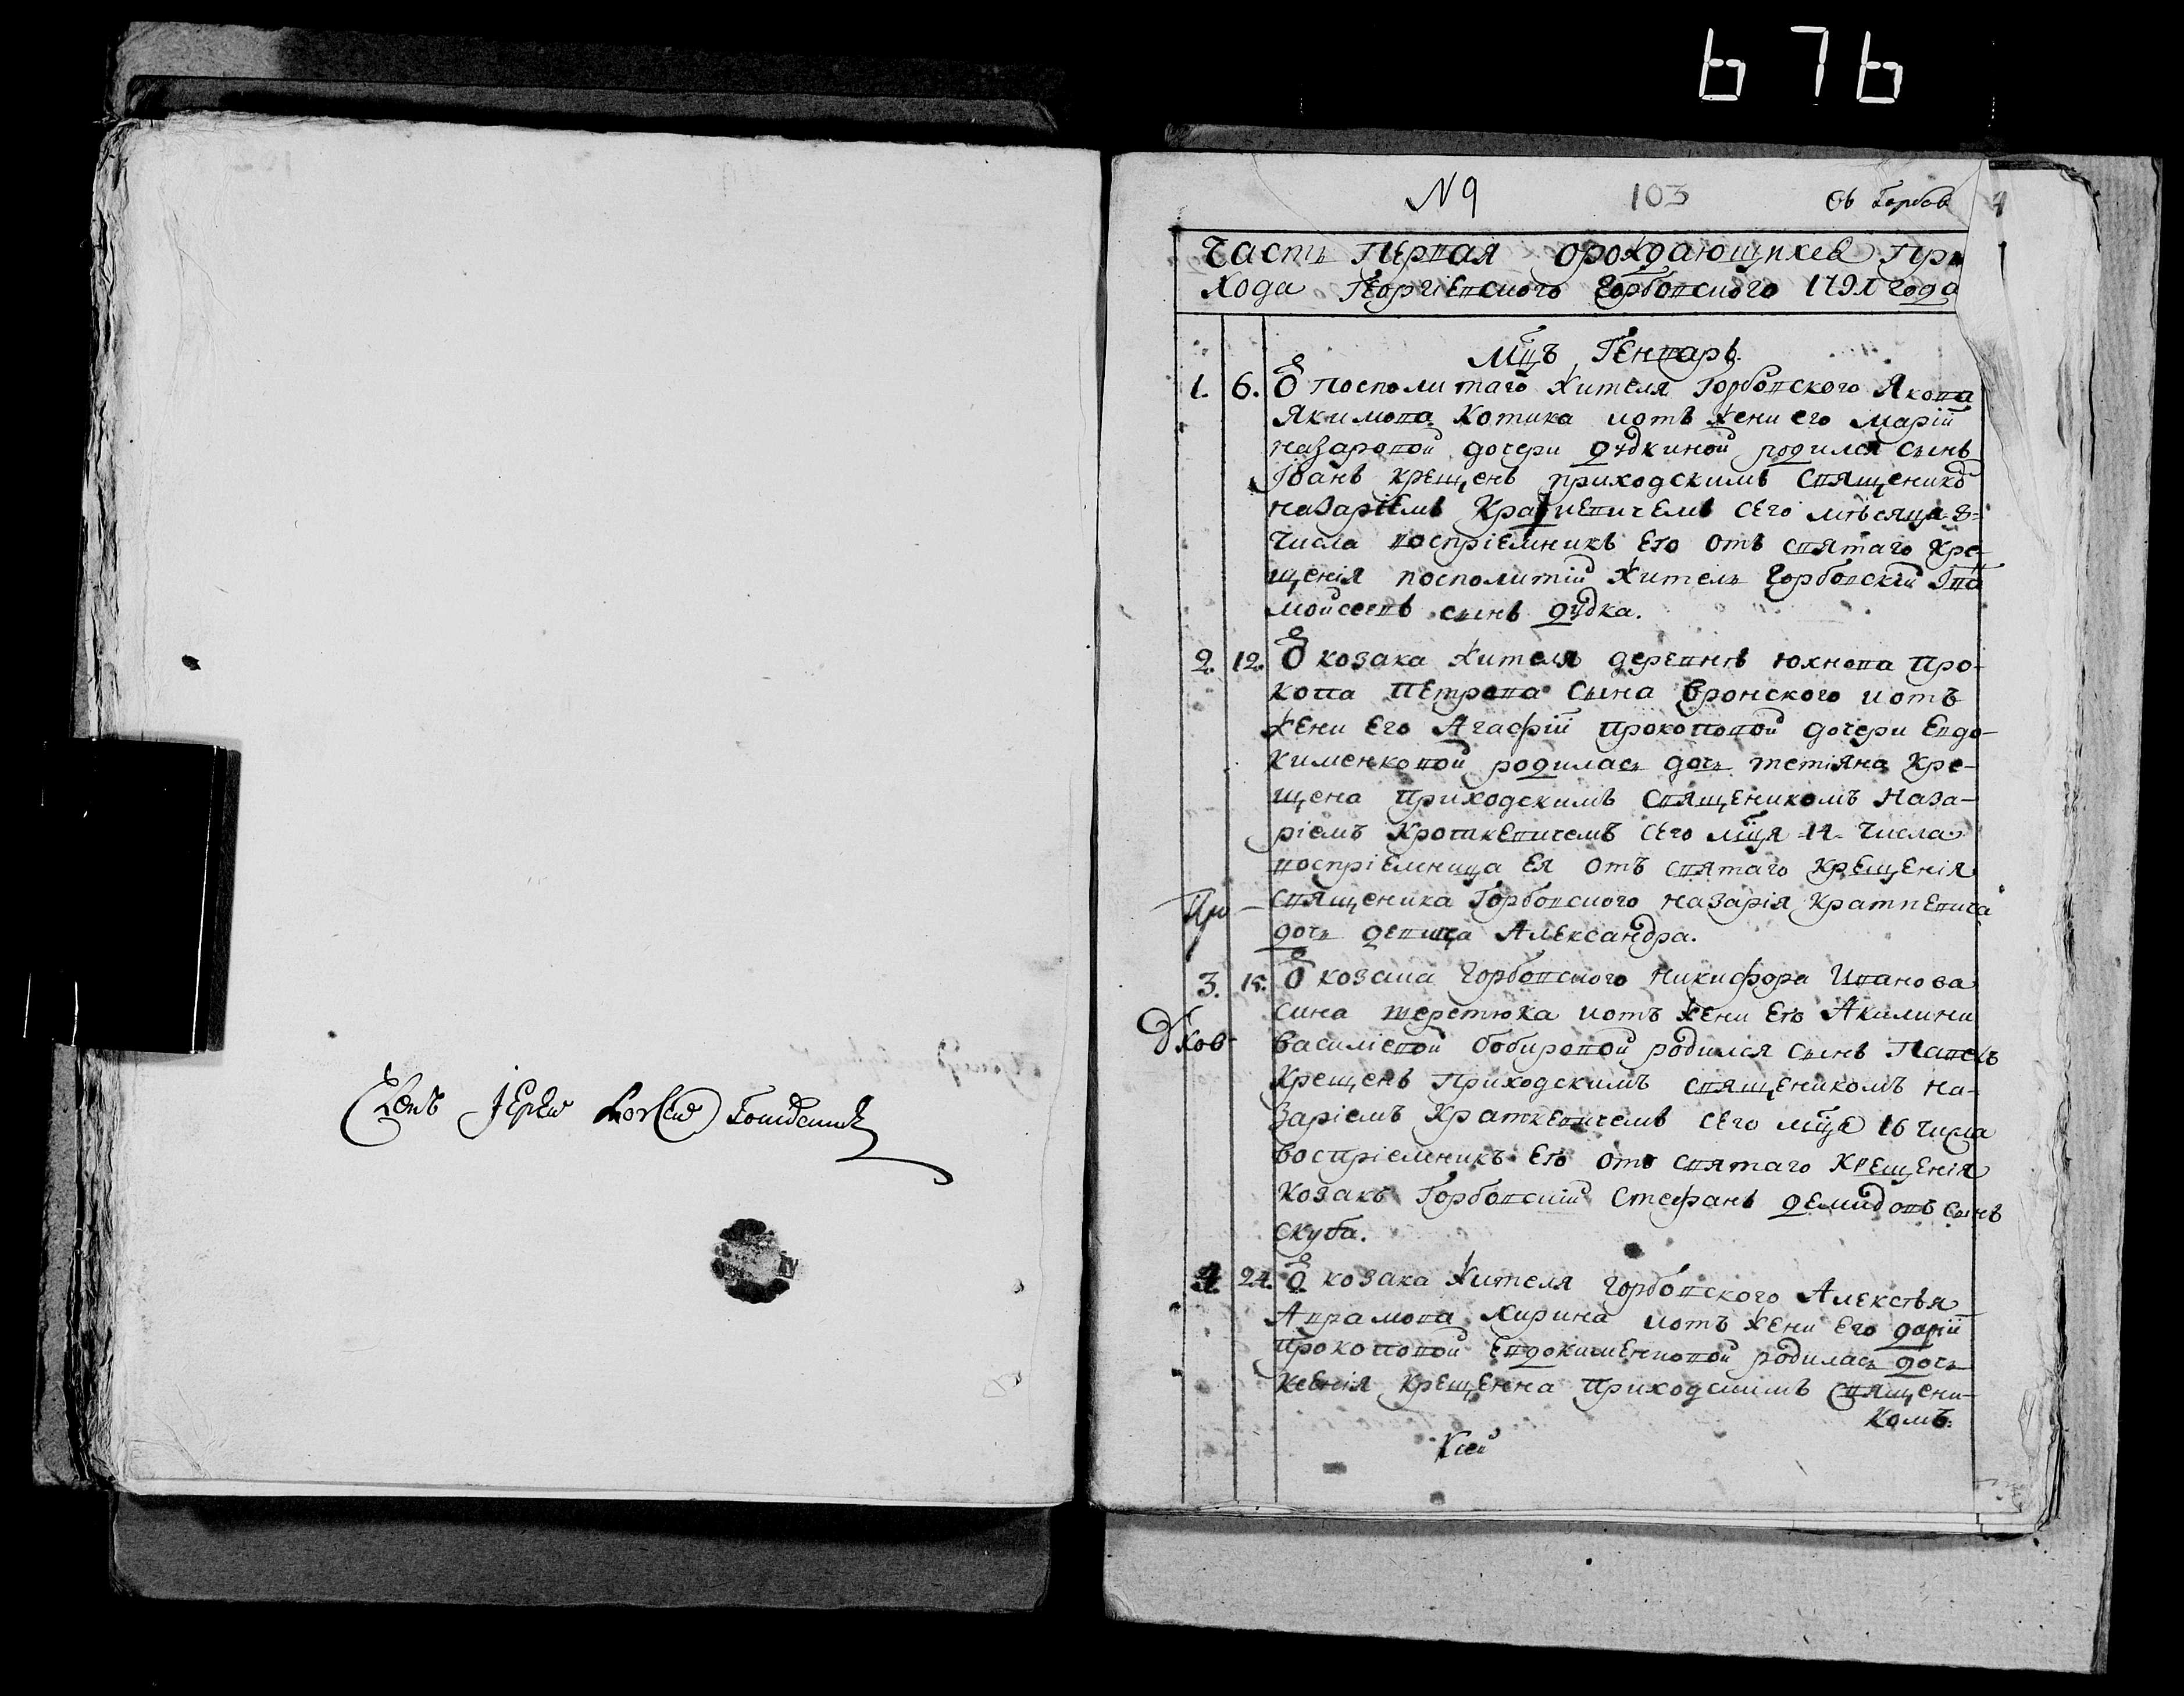 676
№ 9 103 Съ Горбов
Часть Первая ораждающихся При
хода Георгіевского Горбовского 1791 года
Мцъ Генварь.
1. 6. Ѿ посполитаго жителя Горбовского Якова
Якимова Котика иотъ жени его Маріи
Назаровой дочери Дудкиной родился сынъ
Іванъ крещенъ приходскимъ священико
Назаріемъ Краткевичемъ сего мѣсяца 8=
числа воспріемникъ его отъ святаго кре-
щенія посполитій житель Горбовскій Іва
Мойсеевъ сынъ Дудка.
2. 12. Ѿ козака жителя деревнѣ Юхнова Про-
копа Петрова сына Вронского иотъ
жени его Агафіи Прокоповой дочери Евдо-
кименковой родилась дочь Тетіяна кре-
щена приходскимъ священикомъ Наза-
ріемъ Краткевичемъ сего мця 14 числа
воспріемница ея отъ святаго крещенія
священика Горбовского Назарія Краткевича
дочь девица Александра.
3. 15. Ѿ козака Горбовского Никифора Иванова
сина Теретюка иотъ жени его Акилини
Василіевой Бобировой родился сынъ Павелъ
крещенъ приходскимъ священикомъ На-
заріемъ Краткевичемъ сего мца 16 числа
воспріемникъ его отъ святаго крещенія
козакъ Горбовскій Стефанъ Демидовъ сынъ
Скуба.
4. 24. Ѿ козака жителя Горбовского Алексѣя
Аврамова Хирина иотъ жени его Даріи
Прокоповой Евдокименковой родилась дочь
Ксенія крещенна приходскимъ священи-
комъ.